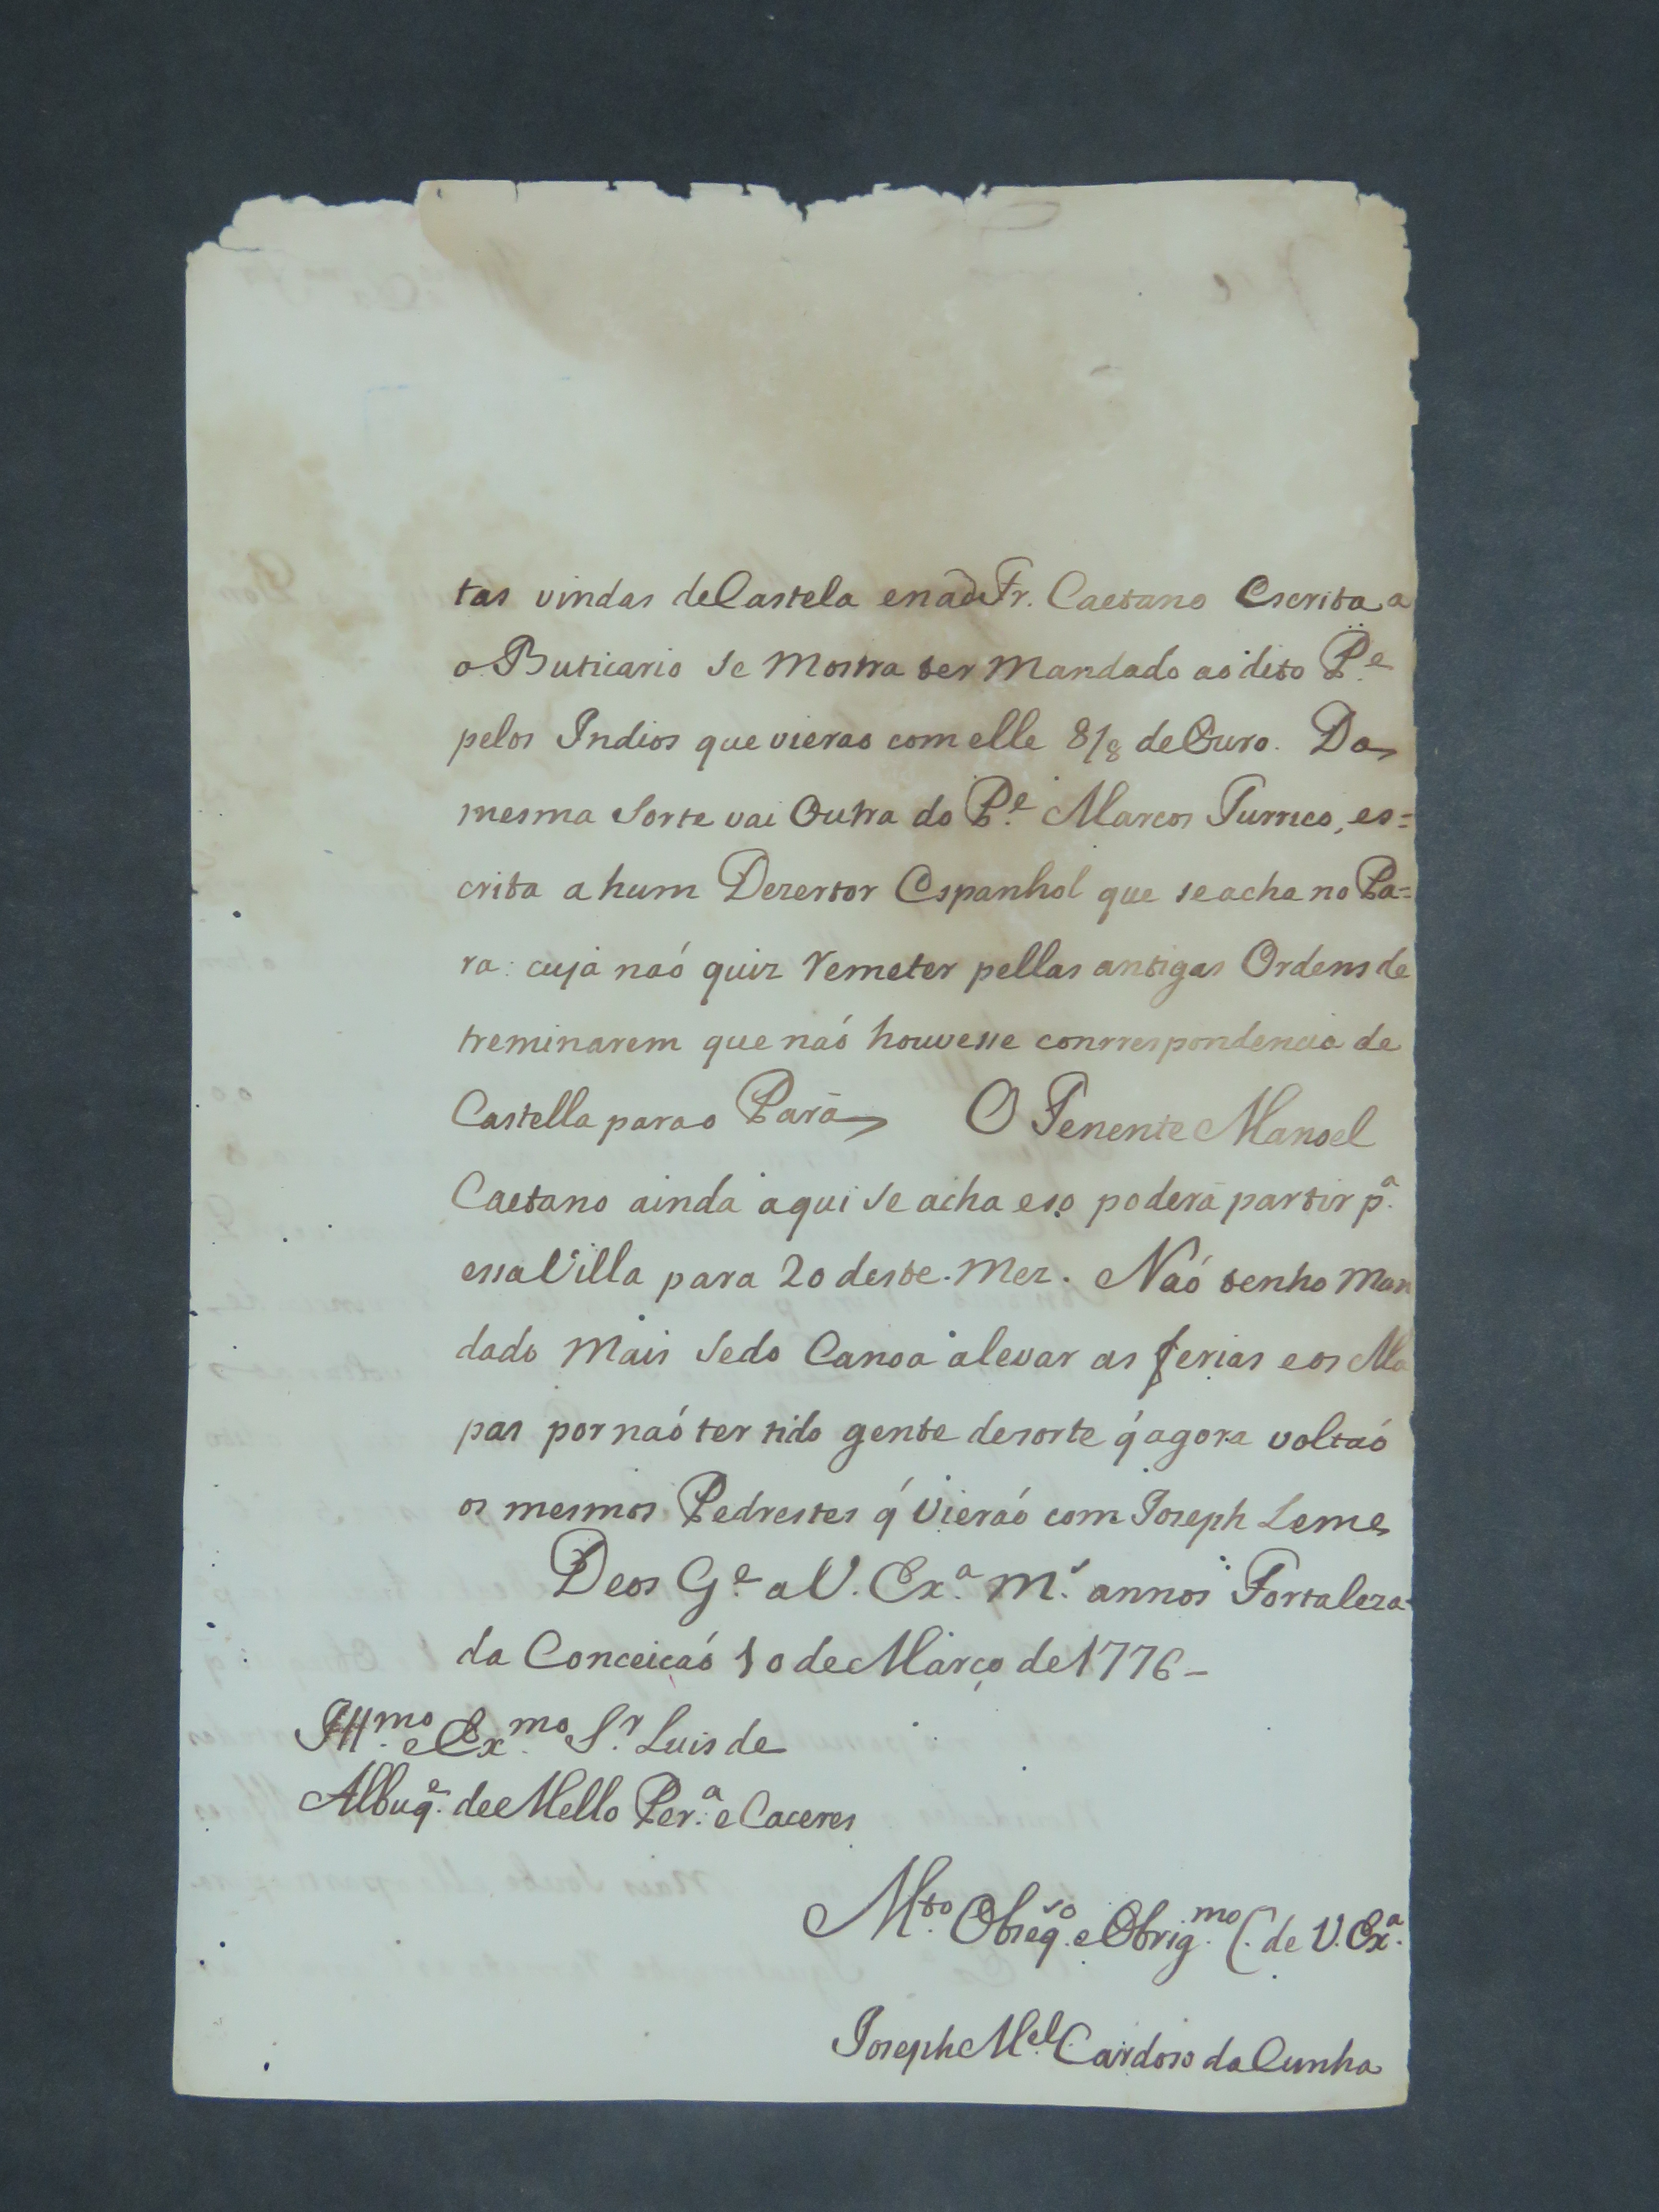 tas vindas de Castela e na de Fr. Caetano Escrita a
o Buticario se Mostra ser Mandado ao dito P.e
pelos Indios que vieraõ com elle 8/8 de Ouro. Da
mesma Sorte vai Outra do P.e Marcos Turrico, es=
crita a hum Dezertor Espanhol que se acha no Pa=
ra: cuja naó quiz remeter pellas antigas Ordens de
treminarem que naó houvesse conrrespondencia de
Castella para o Pará O Tenente Manoel
Caetano ainda aqui se acha e só poderá partir p.a
essa Villa para 20 deste Mez. Naó tenho Man
dado Mais Sedo Canoa a levar as ferias e os Ma
pas por naó ter tido gente de sorte q́ agora voltaó
os mesmos Pedrestes q́ Vieraó com Joseph Leme
Deos G.e a V. Ex.a M.s annos Fortaleza
da Conceicaó 10 de Março de 1776_
Ill.mo e Ex.mo S.r Luis de
Albuq.e de Mello Per.a e Caceres
M.to Obseq.so e Obrig.mo C. de V. Ex.a
Joseph M.el Cardoso da Cunha